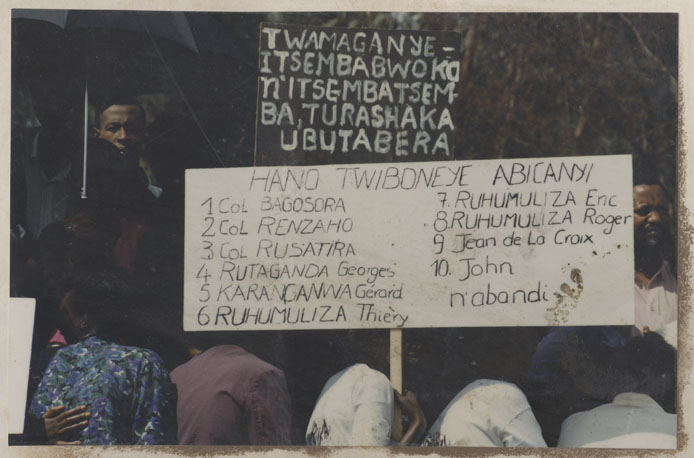 TWAMAGANYE-
ITSEMBABWOKO
N'ITSEMBATSEM-
BA, TURASHAKA
UBUTABERA
HANO TWIBONEYE ABICANYI
1 Col BAGOSORA
2 Col RENZAHO
3 Col RUSATIRA
4 RUTAGANDA Georges
5 KARANGANWA Gérard
6 RUHUMULIZA Thiery
7. RUHUMULIZA Eric
8. RUHUMULIZA Roger
9 Jean de La Croix
10. John
n'abandi